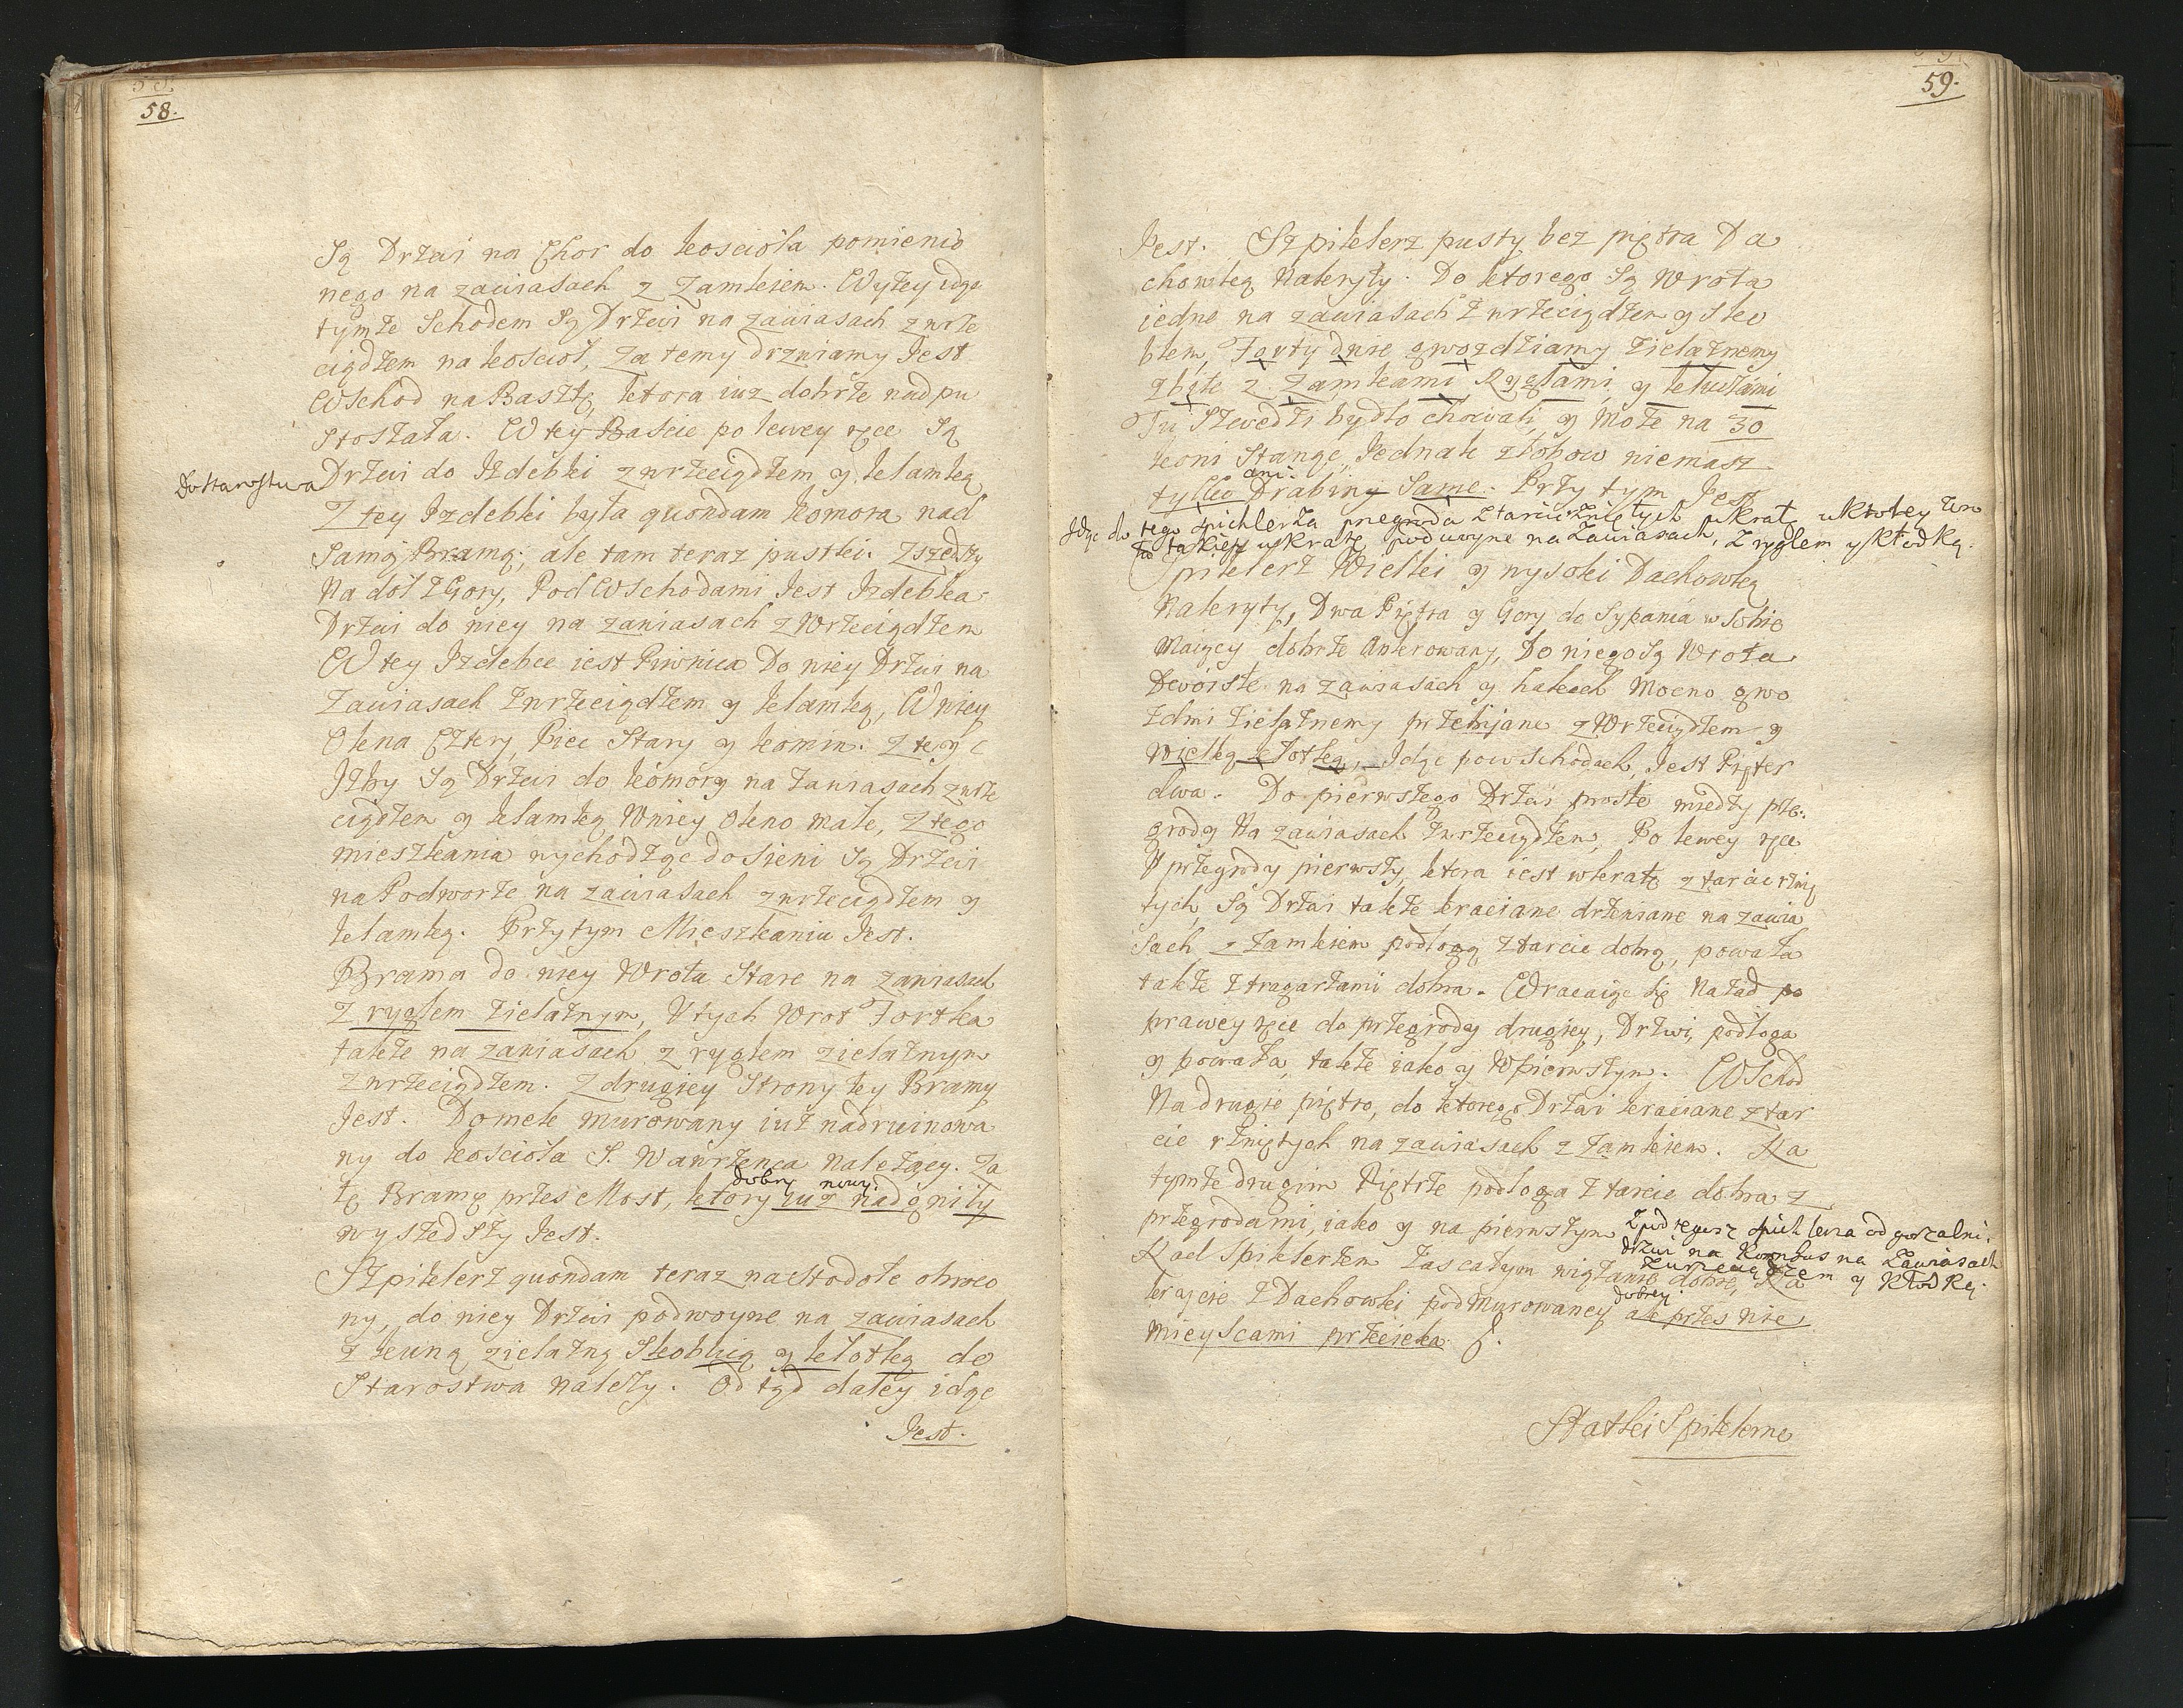 58.
Są Drzwi na Chor do kosciola pomienio
nego na zawiasach z Zamkiem. Wyzey idąc
tymze Schodem Są Drzwi na zawiasach z wrze
ciądzem na kosciol, Za temy drzwiamy Jest
Wschod na Basztę, ktora iuz dobrze nad pu
stoszała. W tey Baście po lewey ręce Są
Do Starostwa
Drzwi do Izdebki z wrzeciądzem y klamką
Z tey Izdebki była quondam komora nad
Samą Bramą; ale tam teraz pustki. Zszedszy
Na doł z Gory, Pod Wschodami Jest Izdebka
Drzwi do niey na zawiasach z Wrzeciądzem
W tey Izdebce iest Piwnica Do niey Drzwi na
Zawiasach z wrzeciądzem y klamką, W niey
Okna Cztery, Piec Stary y komin. Z tey
Izby Są Drzwi do komory na zawiasach z wrze
ciądzem y klamką W niey Okno małe, Z tego
mieszkania wychodząc do sieni Są Drzwi
na Podworze na zawiasach z wrzeciądzem y
klamką. Przy tym Mieszkaniu Jest.
Brama do niey Wrota Stare na zawiasach
Z ryglem zielaznym, U tych Wrot Fortka
takze na zawiasach z ryglem zielaznym
z wrzeciądzem. Z drugiey Strony tey Bramy
Jest. Domek murowany iuz nadruinowa
ny do kosciola S. Wawrzenca Nalezący. Za
dobry nowy
tę Bramę przes Most, ktory iuz nadgniły
wyszedszy Jest.
Szpiklerz quondam teraz na Stodołe obroco
ny, do niey Drzwi podwoyne na zawiasach
z kuną zielazną Skoblicą y kłotką do
Starostwa nalezy. Od tąd daley idąc
Jest.
59.
Jest. Szpiklerz pusty bez piętra Da
chowką Nakryty. Do ktorego Są Wrota
iedne na zawiasach z wrzeciądzem y sko
blem, Forty dwie gwozdziamy zielaznemy
zbite z Zamkami Ryglami y kluczami
Tu Szwedzi bydło chowali, y Moze na 30
koni Stanąć, Jednak złobow niemasz
ani
tylko Drabiny Same. Przy tym Jest
Idąc do tego spichlerza przegroda z tarcic rzniętych w kratę w ktorey wro
ta takiesz w kratę podwoyne na Zawiasach, z ryglem y kłodką.
Spiklerz Wielki y wysoki Dachowką
Nakryty, Dwa Piętra y Gory do Sypania w Sobie
Maiący dobrze Ankrowany, Do niego Są Wrota
Dwoiste na zawiasach y hakach Mocno gwo
zdmi zielaznemy przebijane z Wrzeciądzem y
Wielką kłotką, Idąc po wschodach, Jest Pięter
dwa. Do pierwszego Drzwi proste miedzy prze
grody Na zawiasach z wrzeciądzem, Po lewey ręce
W przegrody pierwszy, ktora iest w kratę z tarcic rznię
tych, Są Drzwi takze kraciane drzewiane na zawia
sach z zamkiem podłogą z tarcic dobrą, powała
takze z tragarzami dobra. Wracaiąc się Nazad po
prawey ręce do przegrody drugiey, Drzwi, podłoga
y powała, takze iako y W pierwszym. Wschod
Na drugie piętro, do ktorego Drzwi kraciane z tar
cic rzniętych na zawiasach z zamkiem. Na
tymze drugim Piętrze podłoga z tarcic dobra, z
przegrodami, iako y na pierwszym
Z pod tegosz spichlerza od gorzalni
drzwi na Kornhus na Zawiasach
z wrzeciądzem y kłodką
Nad Spiklerzem zas całym wiązanie dobre, Na
dobrey
krycie z Dachowki podmurowaney ale przes nie
mieyscami przecieka.
Statki Spiklerne